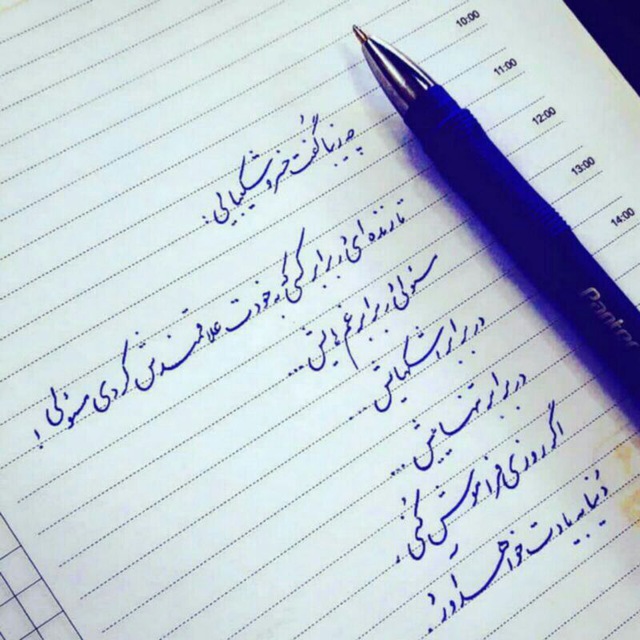 10:00
11:00
12:00
13:00
14:00
چه زیبا گفت خسرو شکیبایی:
تا زنده‌ای در برابر کسی که به خودت علاقمندش کردی مسئولی!
مسئولی در برابر غم‌هایش...
در برابر اشکهایش...
در برابر تنهاییش...
اگر روزی فراموشش کُنی،
دُنیا به یادت خواهد آورد.
Parker